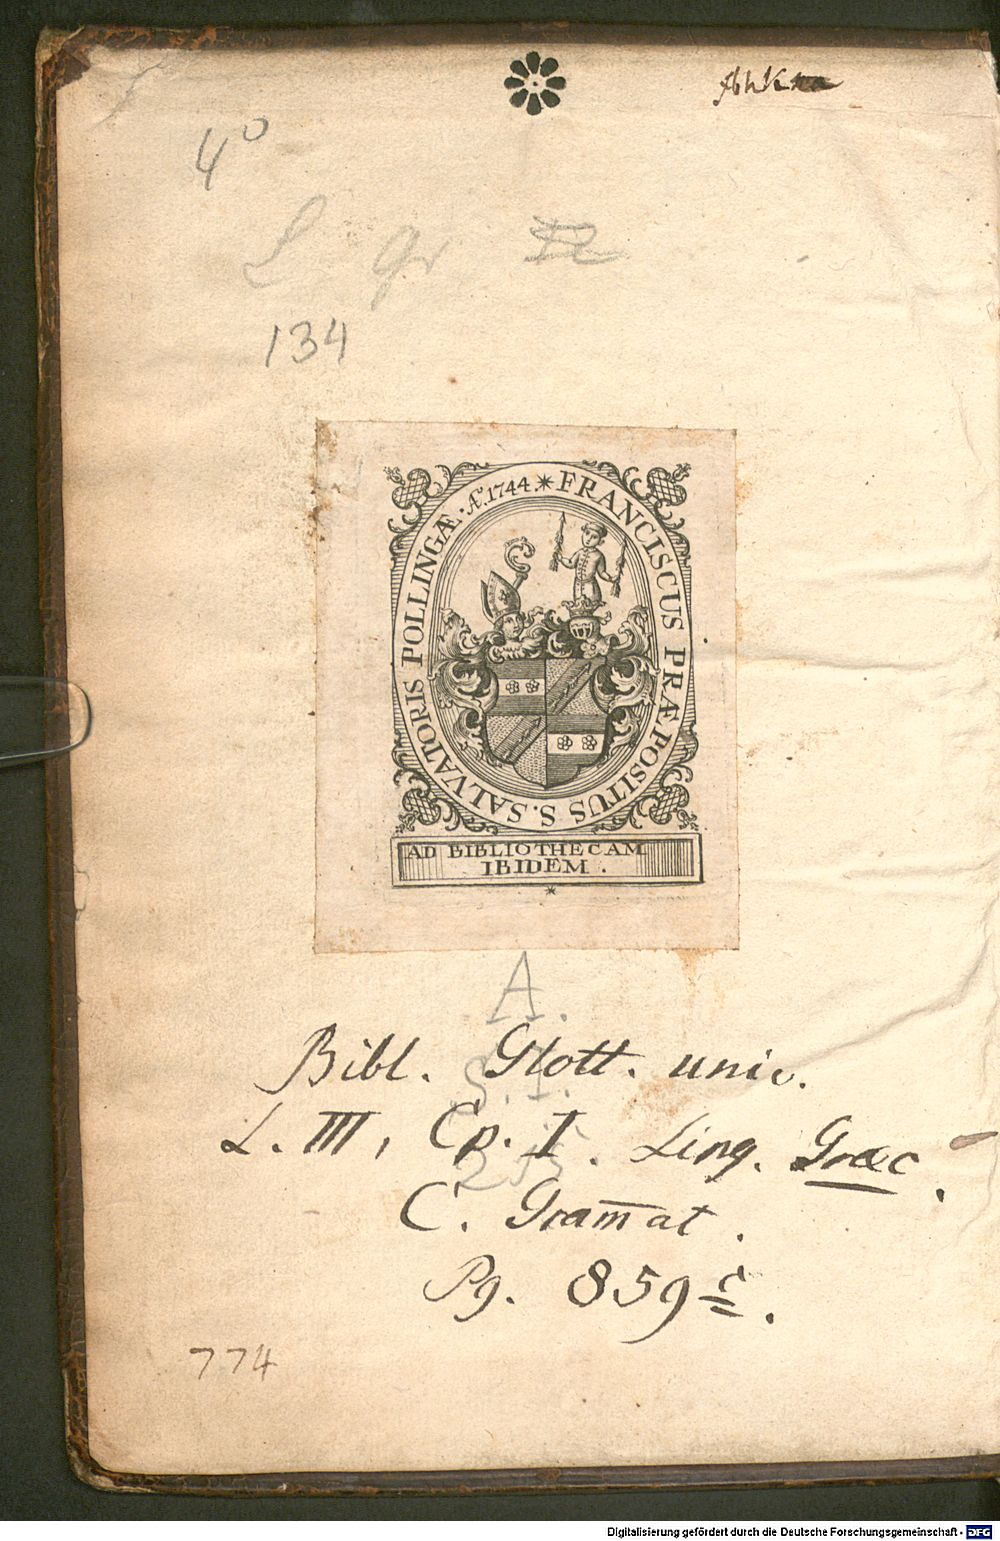 4°
L gr
134
Æ. 1744. * FRANCISCUS PRÆPOSITUS S. SALVATORIS POLLINGÆ.
AD BIBLIOTHECAM
IBIDEM.
A.
Bibl. Glott. univ.
L. III, Cp. I. Ling. Græc.
C. Gram̄at.
Pg. 859 c.
774
Digitalisierung gefördert durch die Deutsche Forschungsgemeinschaft - DFG